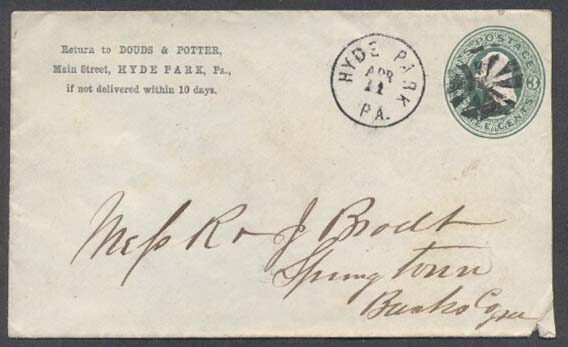 Return to DOUDS & POTTER,
Main Street, HYDE PARK, Pa.,
if not delivered within 10 days.
HYDE PARK
APR
11
PA.
POSTAGE
3
CENTS
Mess R & J Brodt
Springtown
Bucks Co